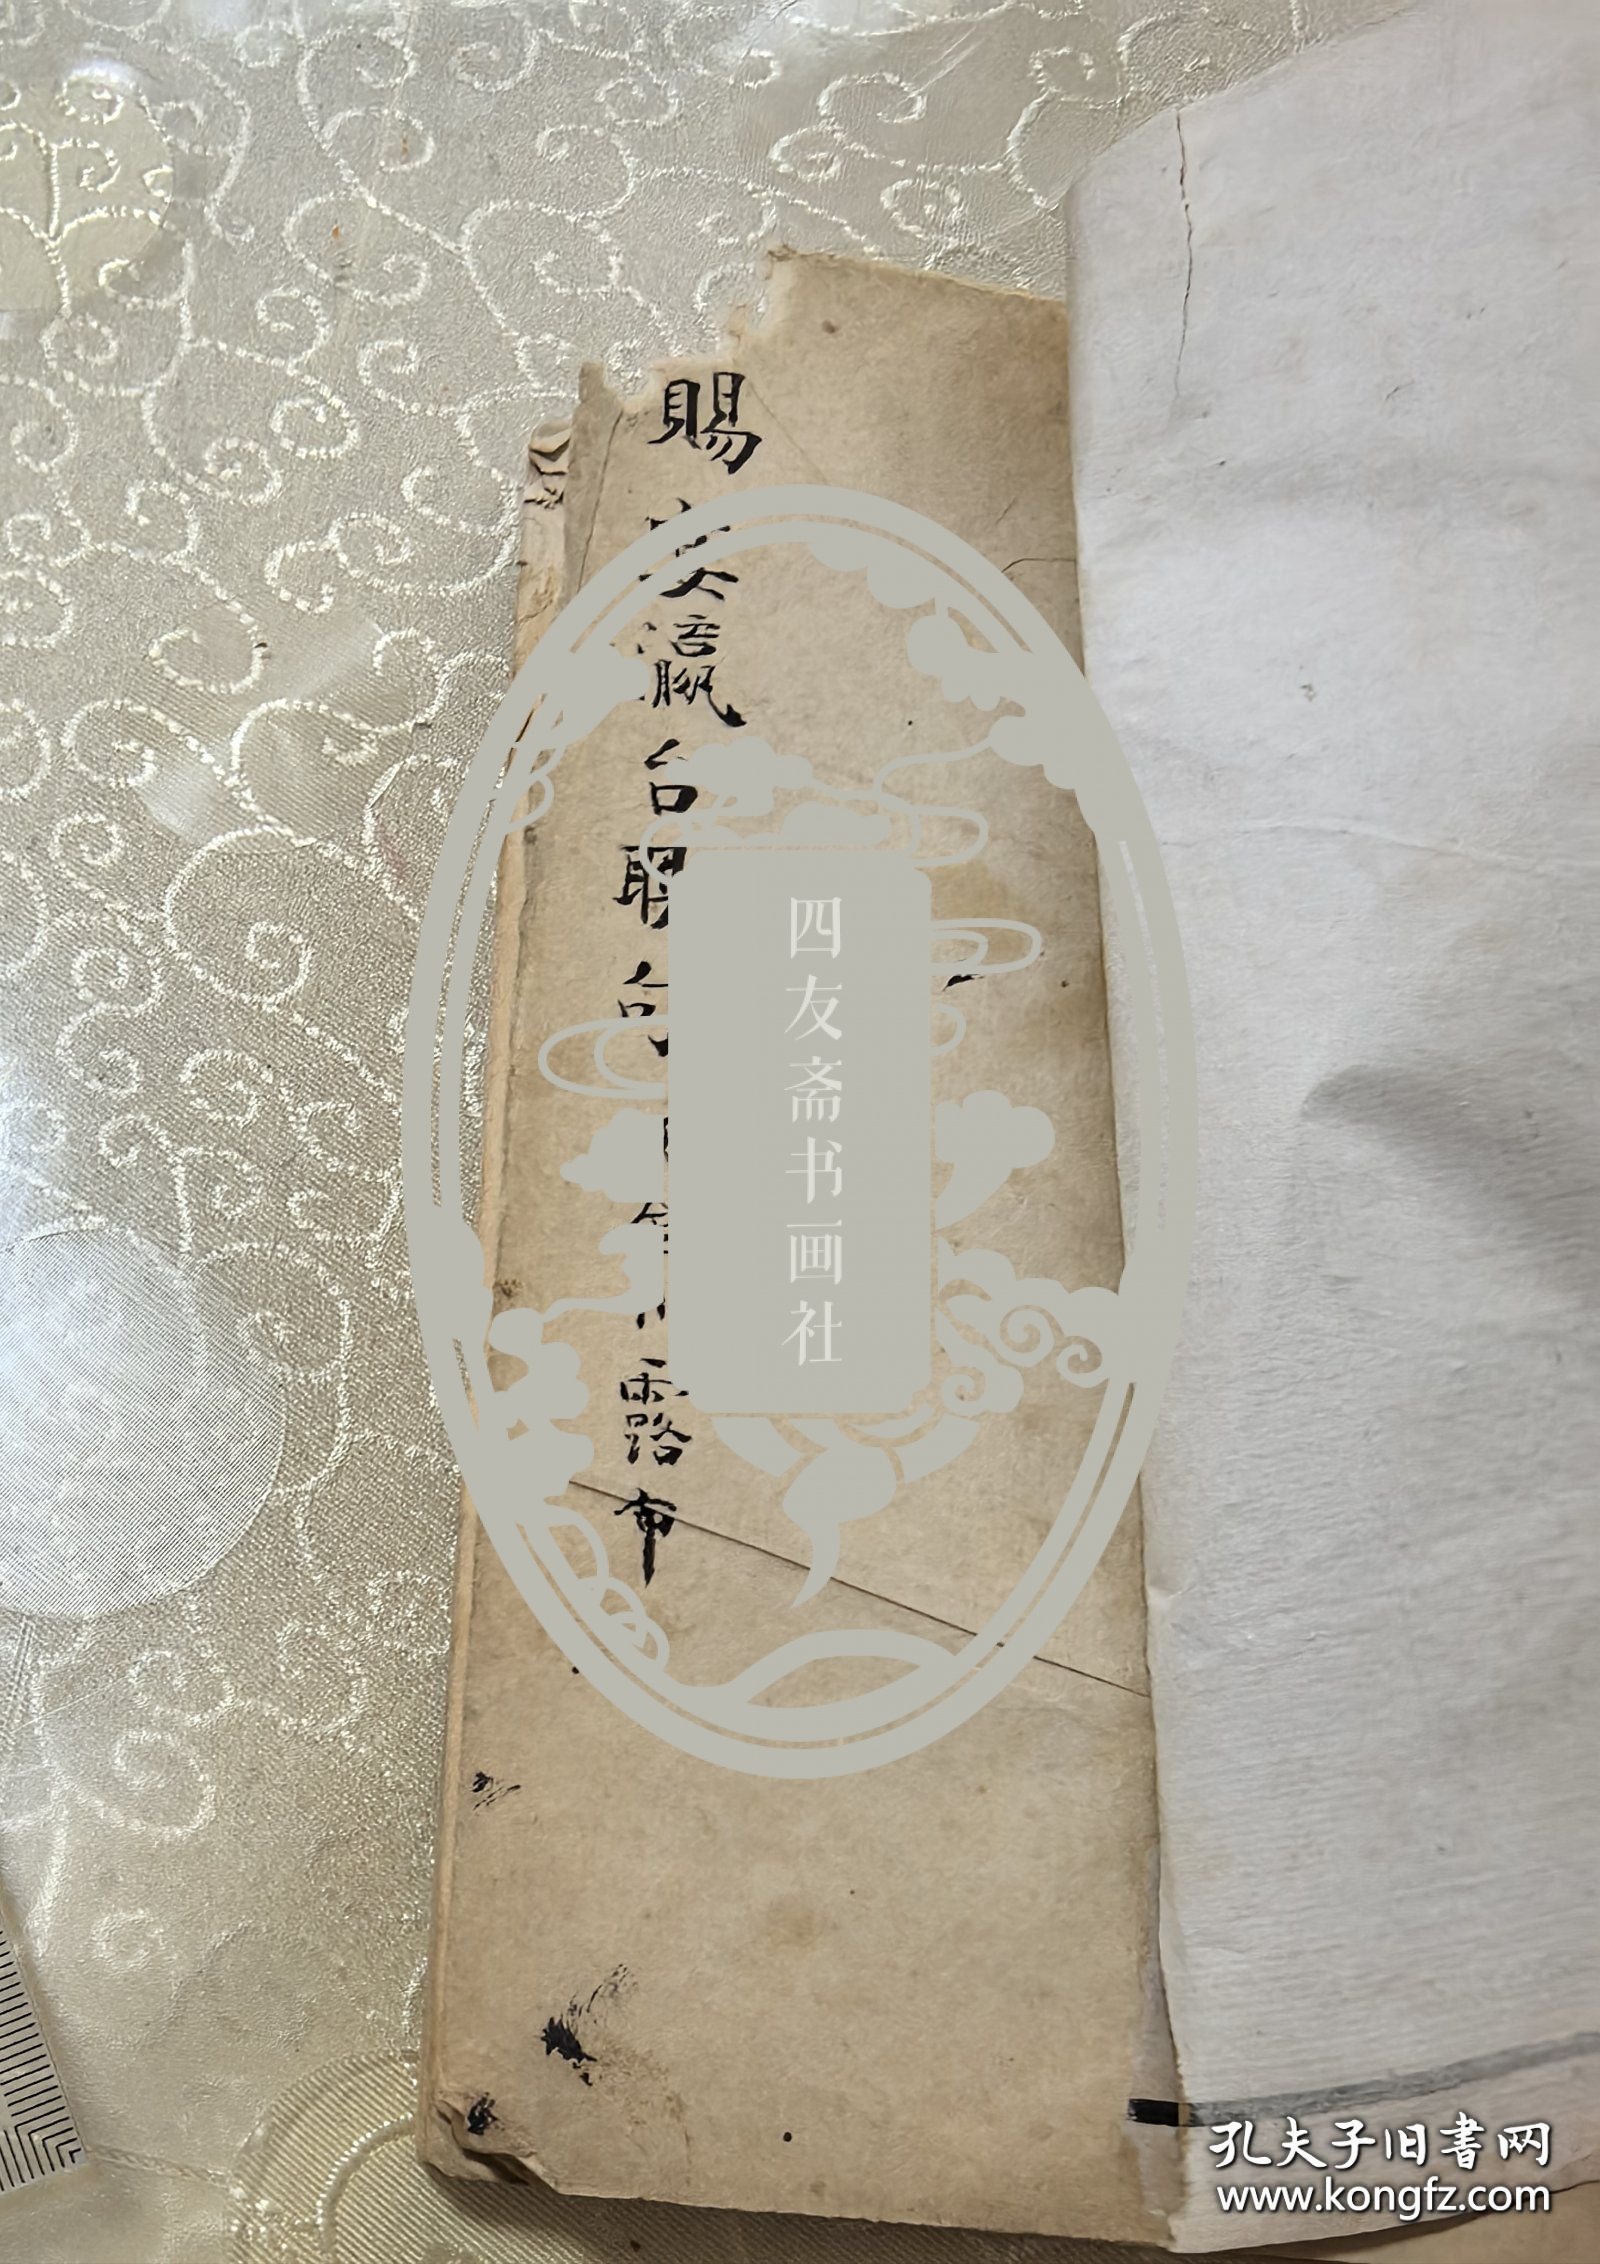 賜宴瀛台聯句
露布
四友斋书画社
孔夫子旧书网
www.kongfz.com